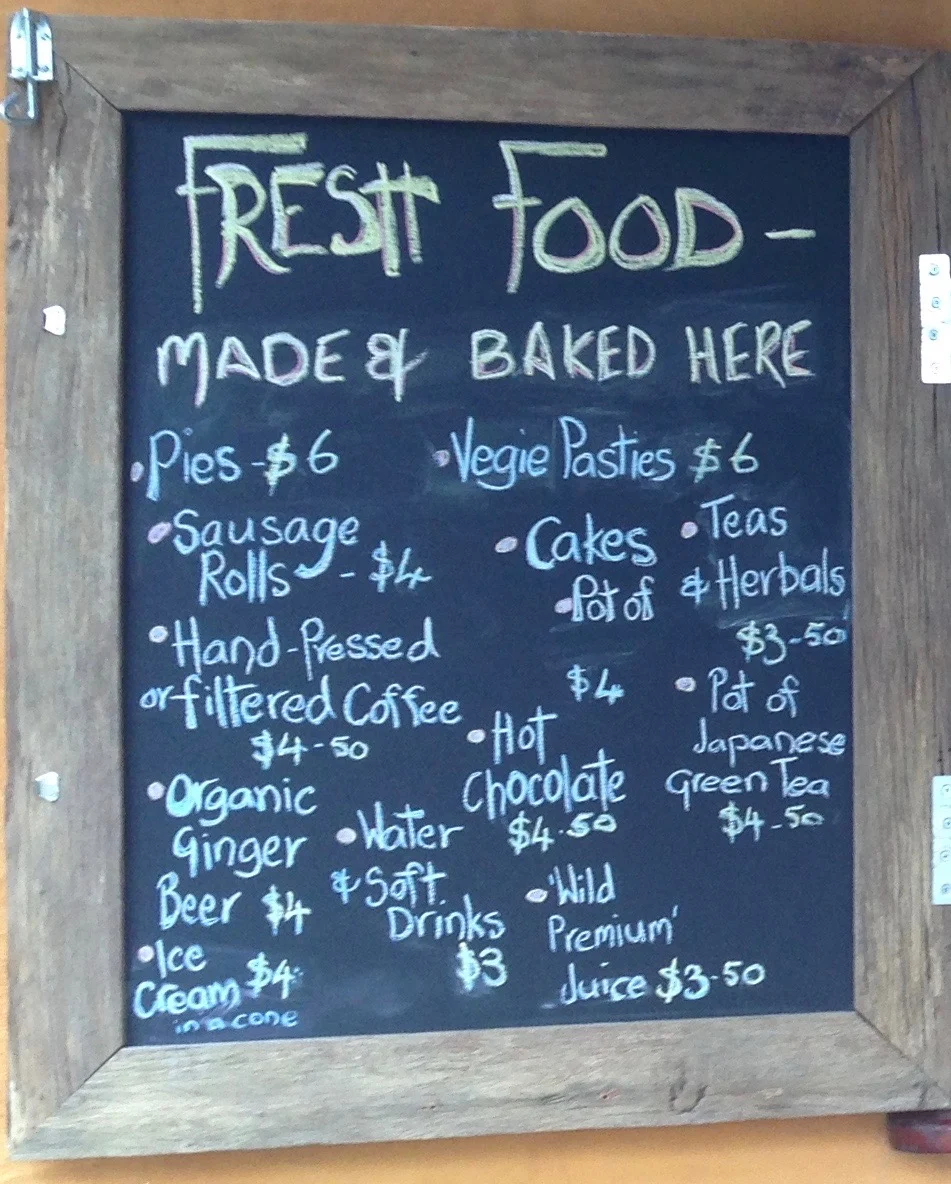 FRESH FOOD -
MADE & BAKED HERE
• Pies - $6
• Vegie Pasties $6
• Sausage
Rolls - $4
• Cakes
• Pot of
$4
• Teas
& Herbals
$3-50
• Hand-Pressed
or filtered Coffee
$4-50
• Hot
Chocolate
$4.50
• Pot of
Japanese
green Tea
$4-50
• Organic
Ginger
Beer $4
• Water
& Soft
Drinks
$3
• 'Wild
Premium'
Juice $3-50
• Ice
Cream $4
in a cone